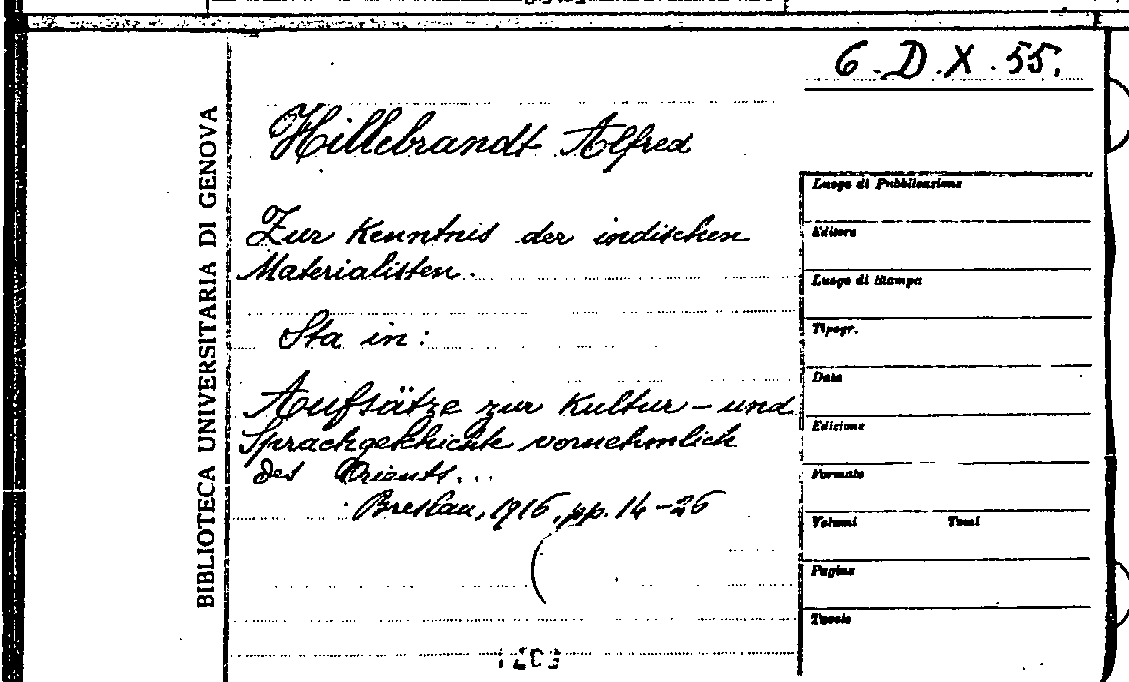 6.D.X.55.
BIBLIOTECA UNIVERSITARIA DI GENOVA
Hillebrandt Alfred
Zur Kenntnis der indischen
Materialisten.
Sta in:
Aufsätze zur Kultur- und
Sprachgeschichte vornehmlich
des Orients...
Breslau, 1916, pp. 14-26
Luogo di Pubblicazione
Editore
Luogo di Stampa
Tipogr.
Data
Edizione
Formato
Volumi Tomi
Pagine
Tavole